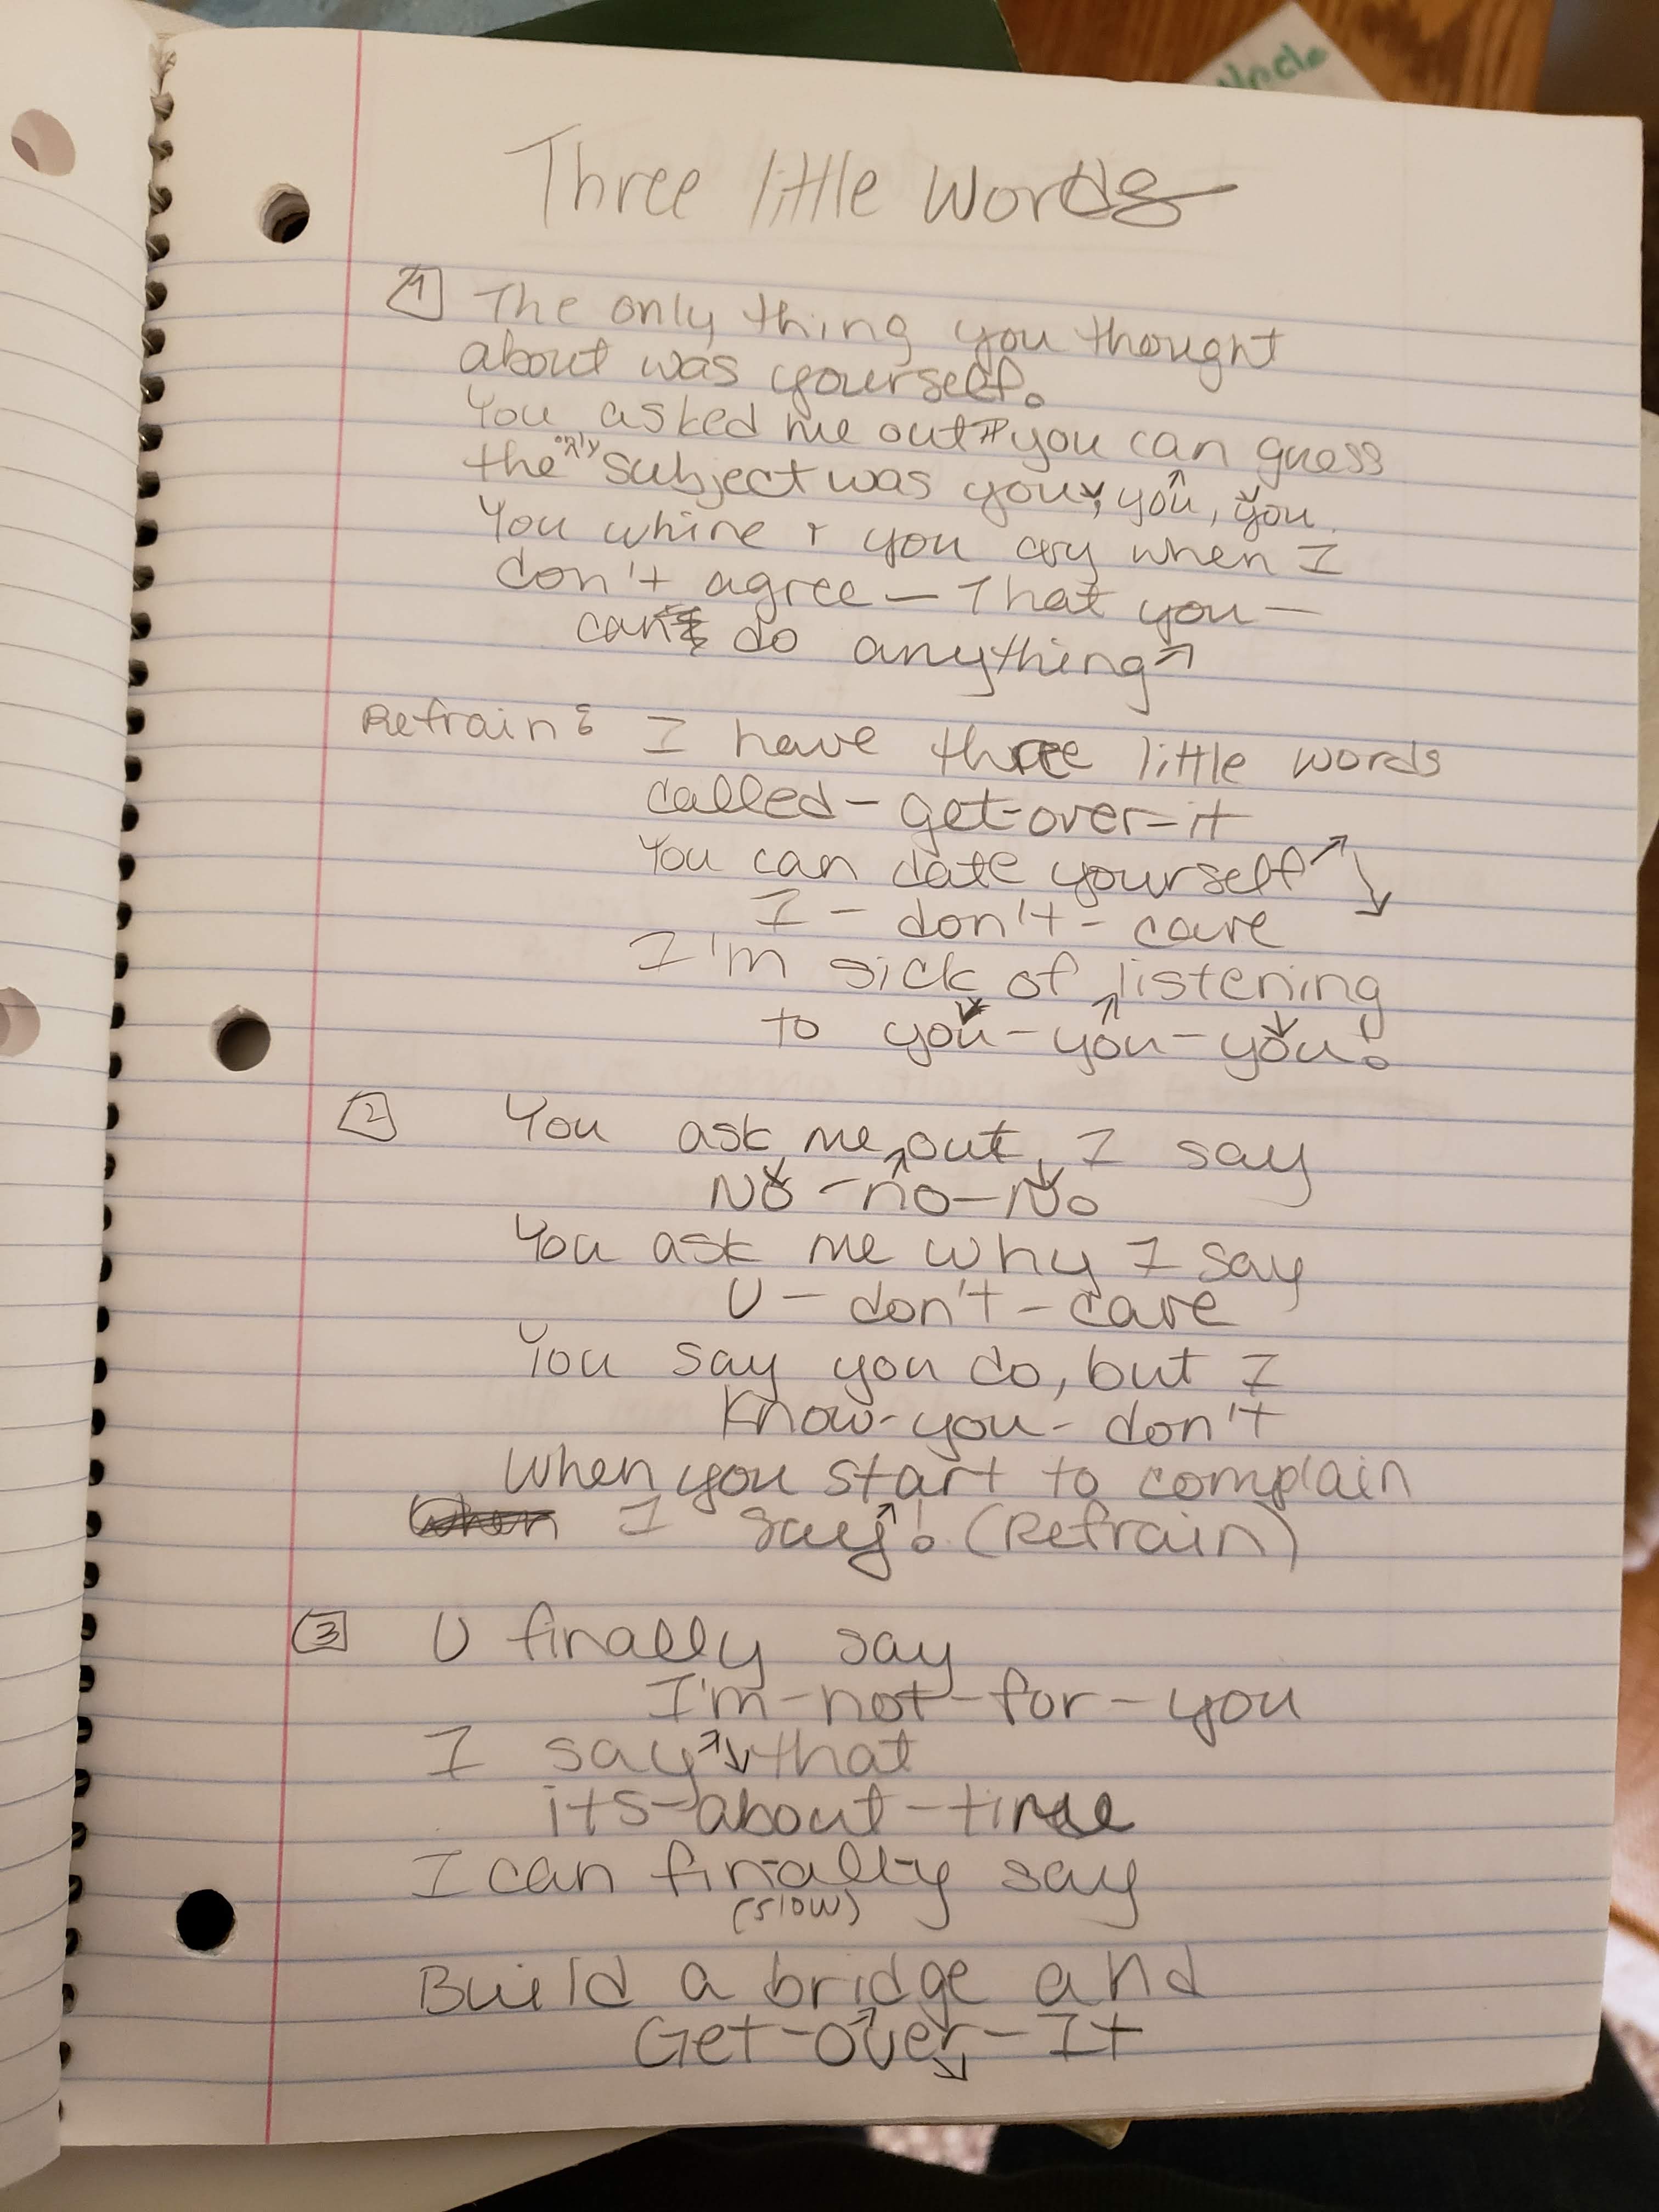 Uncle
Three little Words
1 The only thing you thought
about was yourself.
You asked me out & you can guess
the only subject was you, you, you.
You whine + you cry when I
don't agree — That you —
can do anything
Refrain: I have three little words
called - get-over-it
You can date yourself
I - don't - care
I'm sick of listening
to you - you - you.
2 You ask me out, I say
No - no - No
You ask me why I say
U - don't - care
You say you do, but I
Know - you - don't
When you start to complain
When I say! (Refrain)
3 U finally say
I'm - not - for - you
I say that
its - about - time
I can finally say
(slow)
Build a bridge and
Get - over - It